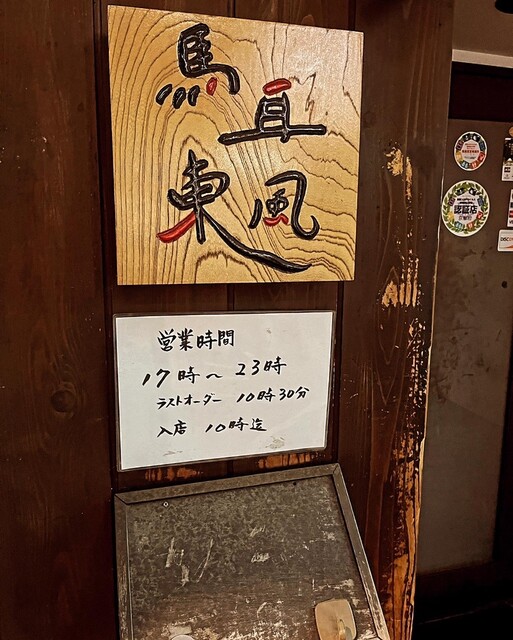 馬耳
東風
営業時間
17時〜23時
ラストオーダー 10時30分
入店 10時迄
認証店